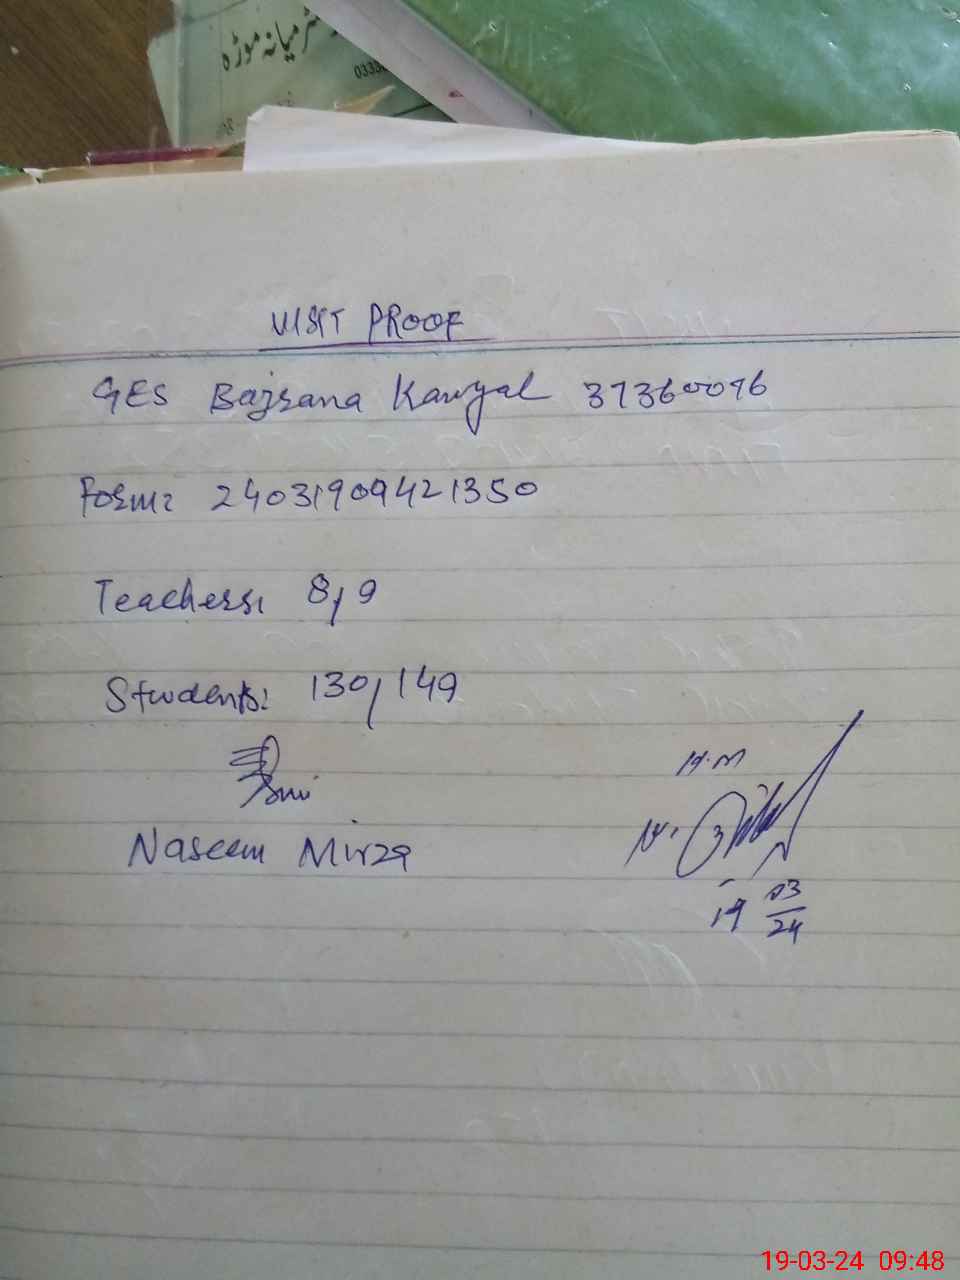 میانہ موڑہ
0333
VISIT PROOF
GES Bajrana Kanyal 37360076
Form: 24031909421350
Teachers: 8/9
Students: 130/149
Naseem Mirza
H.M
19 03/24
19-03-24 09:48